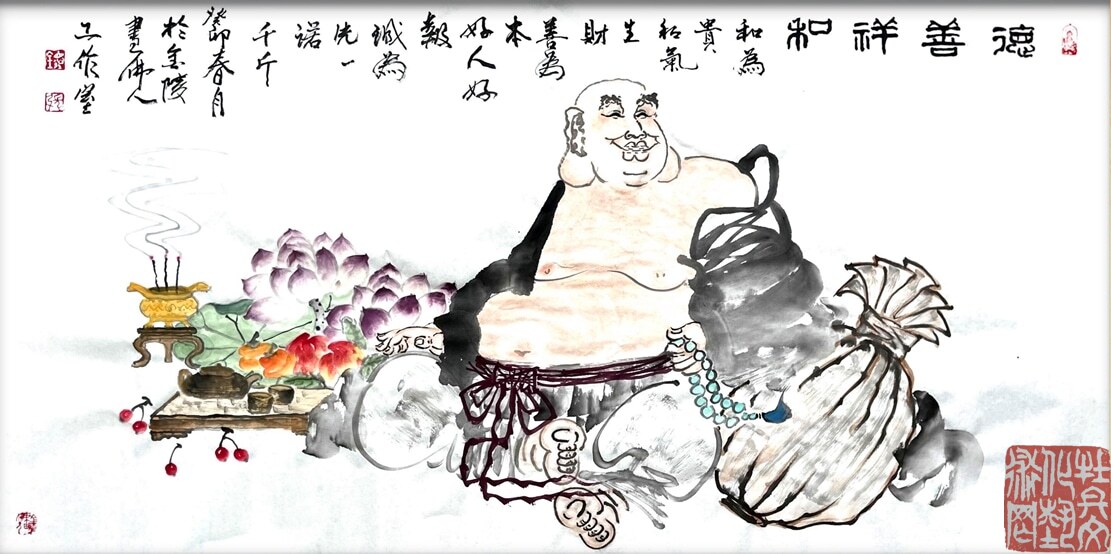 德善祥和
和為
貴
和氣
生
財
善為
本
好人好
報
誠為
先一
諾
千斤
癸卯春月
於金陵
畫佛人
工作室
杜兵文
化藝
術网